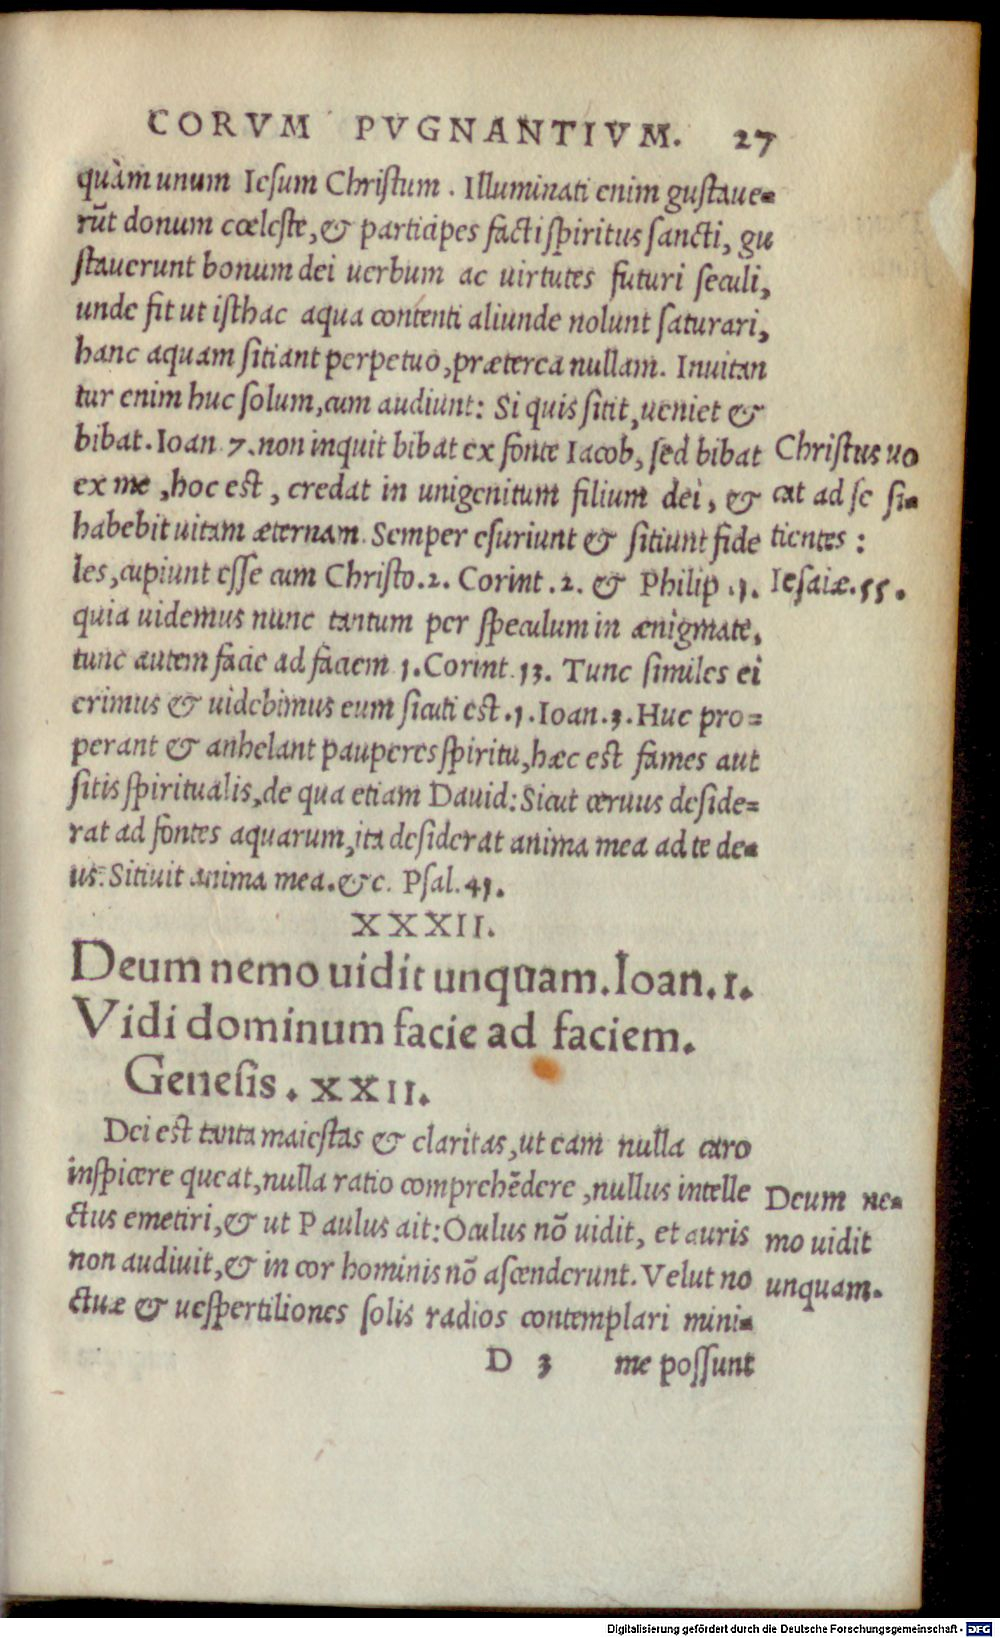 CORVM PVGNANTIVM. 27
quàm unum Iesum Christum. Illuminati enim gustaue=
rūt donum cœleste, & participes facti spiritus sancti, gu
stauerunt bonum dei uerbum ac uirtutes futuri seculi,
unde fit ut isthac aqua contenti aliunde nolunt saturari,
hanc aquam sitiant perpetuo, præterea nullam. Inuitan
tur enim huc solum, cum audiunt: Si quis sitit, ueniet &
bibat. Ioan 7. non inquit bibat ex fonte Iacob, sed bibat
ex me, hoc est, credat in unigenitum filium dei, &
habebit uitam æternam. Semper esuriunt & sitiunt fide
les, cupiunt esse cum Christo. 2. Corint. 2. & Philip. 1.
quia uidemus nunc tantum per speculum in ænigmate,
tunc autem facie ad faciem 1. Corint. 13. Tunc similes ei
erimus & uidebimus eum sicuti est. 1. Ioan. 3. Huc pro=
perant & anhelant pauperes spiritu, hæc est fames aut
sitis spiritualis, de qua etiam Dauid: Sicut ceruus deside=
rat ad fontes aquarum, ita desiderat anima mea ad te de=
us: Sitiuit anima mea. &c. Psal. 41.
Christus uo
cat ad se si=
tientes:
Iesaiæ. 55.
XXXII.
Deum nemo uidit unquam. Ioan. 1.
Vidi dominum facie ad faciem.
Genesis. XXII.
Dei est tanta maiestas & claritas, ut eam nulla caro
inspicere queat, nulla ratio comprehēdere, nullus intelle
ctus emetiri, & ut Paulus ait: Oculus nō uidit, et auris
non audiuit, & in cor hominis nō ascenderunt. Velut no
ctuæ & uespertiliones solis radios contemplari mini=
Deum ne=
mo uidit
unquam.
D 3 me possunt
Digitalisierung gefördert durch die Deutsche Forschungsgemeinschaft - DFG